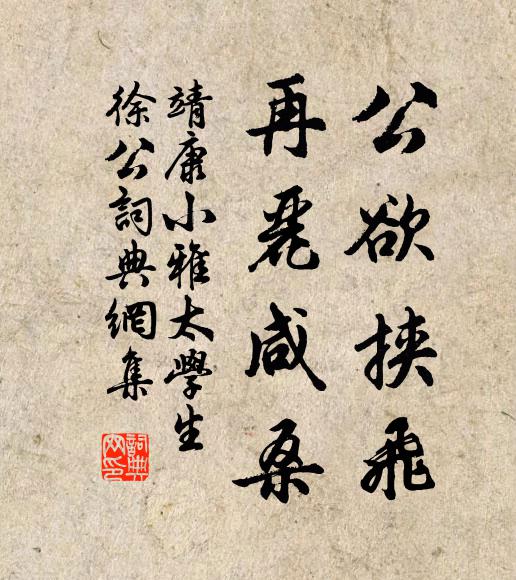 公欲挾飛
再麗咸桑
靖康小雅太學生
徐公詞典網集
詞典
网印